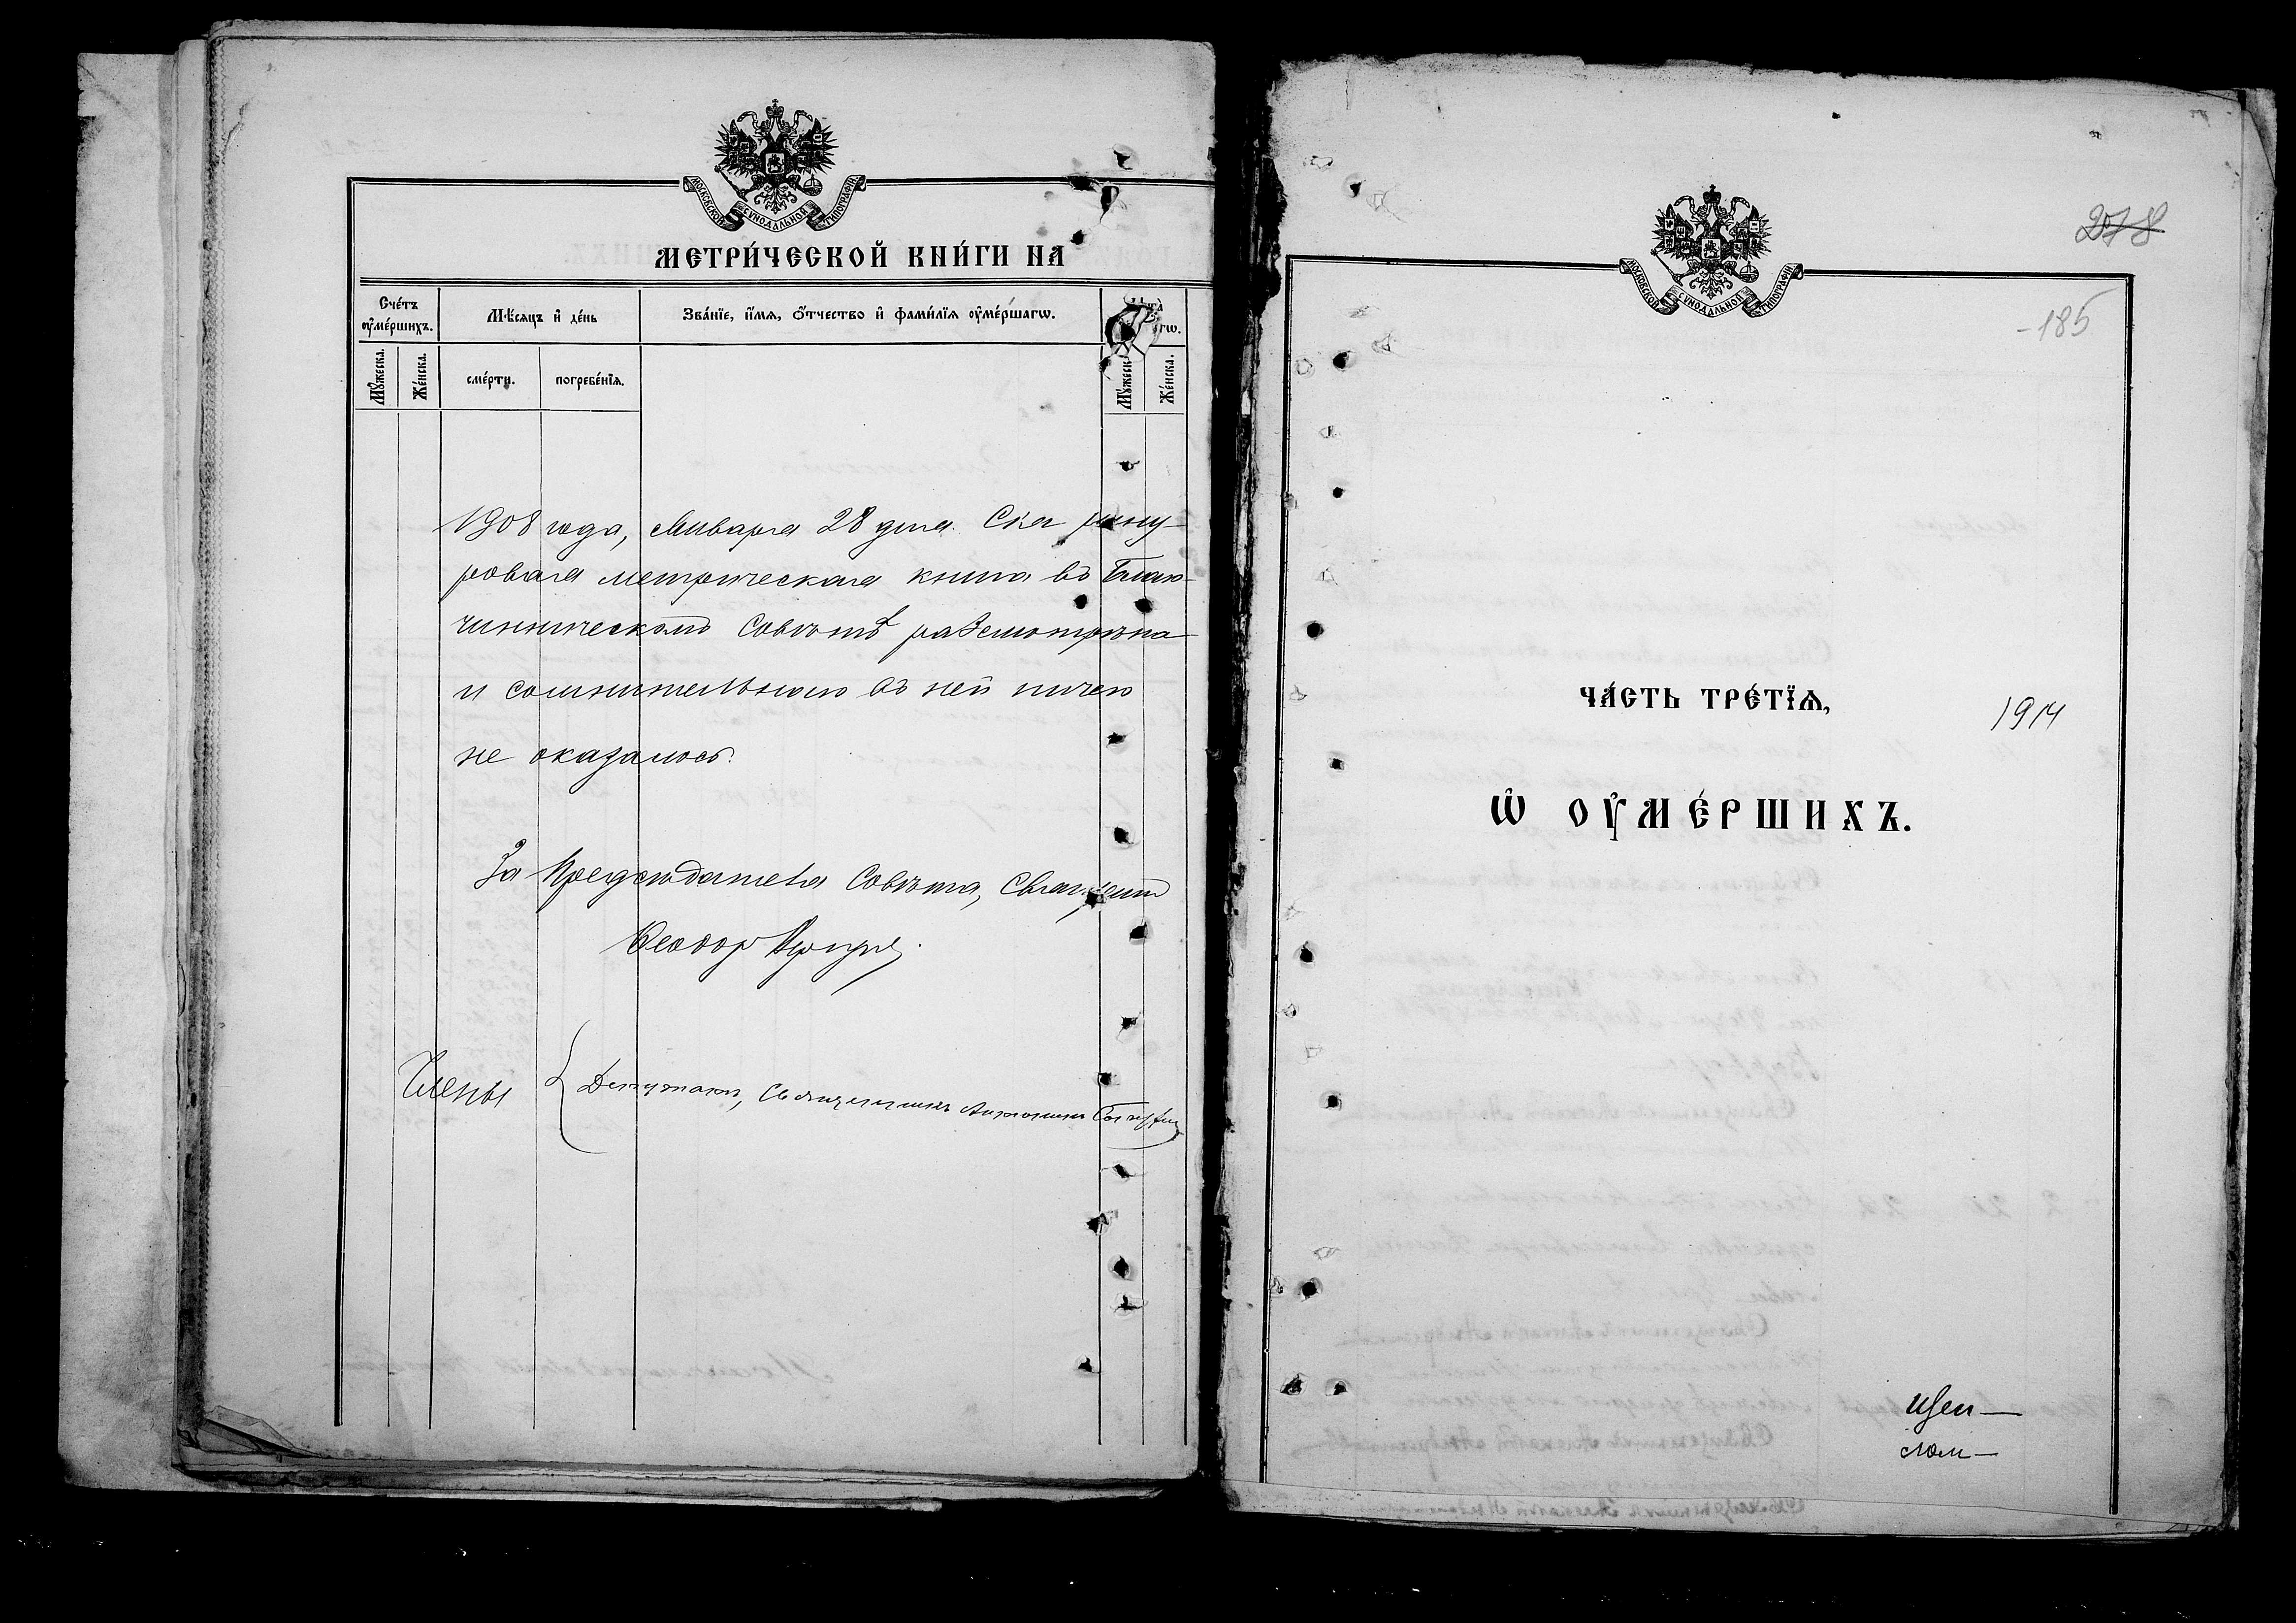 МОСКОВСКОЙ СУНОДАЛЬНОЙ ТИПОГРАФІИ
МЕТРИ́ЧЕСКОЙ КНИ́ГИ НА
Сче́тъ оу҆ме́ршихъ.
Мѣ́сяцъ и҆ де́нь
Зва́нїе, и҆́мѧ, ѻ҆́тчество и҆ фами́лїѧ оу҆ме́ршагѡ.
Мꙋ́жеска.
Же́нска.
сме́рти.
погребе́нїѧ.
Мꙋ́жеск
Же́нска.
1908 года, Января 28 дня. Сия
метрическая книга въ Благо-
чинническомъ Совѣтѣ разсмотрѣна
и сомнительнаго въ ней ничего
не оказалось.
За Предсѣдателя Совѣта, Священ
Ѳеодор
Члены
Депутатъ, Священникъ Антонин
МОСКОВСКОЙ СУНОДАЛЬНОЙ ТИПОГРАФІИ
278
-185
ЧА́СТЬ ТРЕ́ТЇѦ,
1914
Ѡ҆ ОУ҆МЕ́РШИХЪ.